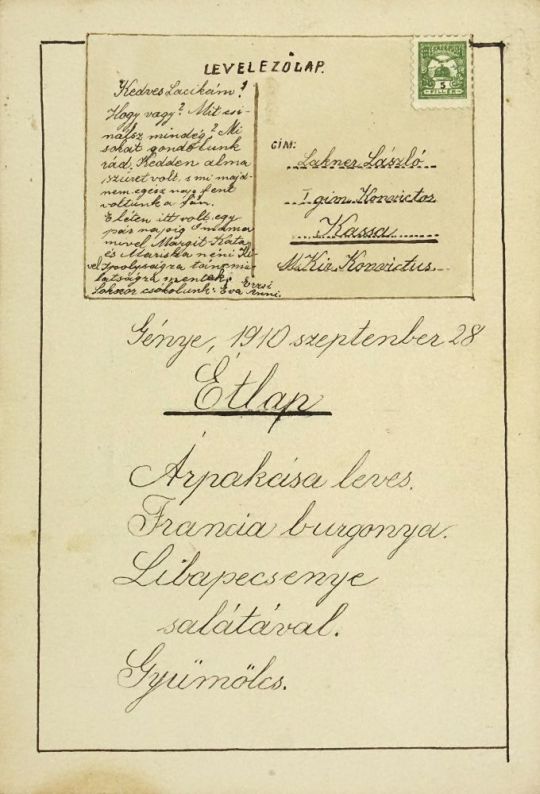 LEVELEZŐLAP.
Kedves Lacikám!
Hogy vagy? Mit csi-
nálsz mindég? Mi
sokat gondolunk
rád. Kedden alma
szüret volt, s mi majd-
nem egész nap fent
voltunk a fán.
Eleten itt volt egy
pár napig
mivel Margit Kata
és Mariska néni
táncmu-
latságra mentek.
Sokszor csókolunk: Erzsi
Éva Anni.
5
FILLÉR
CÍM:
Lakner László
I. gim. Konviktos
Kassa
M. Kir. Konvictus.
Génye, 1910 szeptenber 28
Étlap
Árpakása leves.
Francia burgonya.
Libapecsenye
salátával.
Gyümölcs.